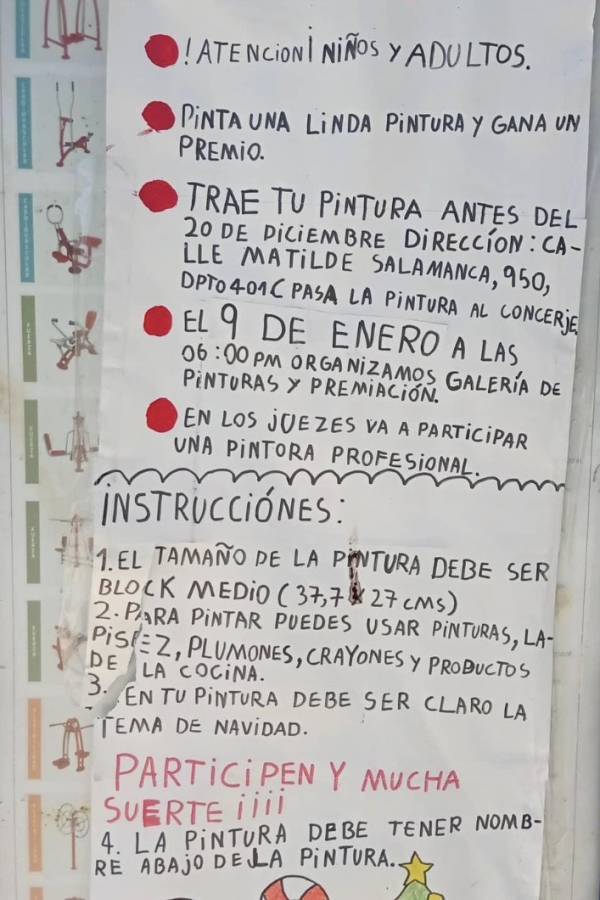 !ATENCIONi NIÑOS Y ADULTOS.
PINTA UNA LINDA PINTURA Y GANA UN
PREMIO.
TRAE TU PINTURA ANTES DEL
20 DE DICIEMBRE DIRECCÍON: CA-
LLE MATILDE SALAMANCA, 950,
DPTO 401C PASA LA PINTURA AL CONCERJE
EL 9 DE ENERO A LAS
06:00 PM ORGANIZAMOS GALERÍA DE
PINTURAS Y PREMIACIÓN.
EN LOS JUEZES VA A PARTICIPAR
UNA PINTORA PROFESIONAL.
INSTRUCCIÓNES:
1. EL TAMAÑO DE LA PINTURA DEBE SER
BLOCK MEDIO (37,7 X 27 cms)
2. PARA PINTAR PUEDES USAR PINTURAS, LA-
PISEZ, PLUMONES, CRAYONES Y PRODUCTOS
DE LA COCINA.
3. EN TU PINTURA DEBE SER CLARO LA
TEMA DE NAVIDAD.
PARTICIPEN Y MUCHA
SUERTE ¡¡¡¡
4. LA PINTURA DEBE TENER NOMB-
RE ABAJO DE LA PINTURA.